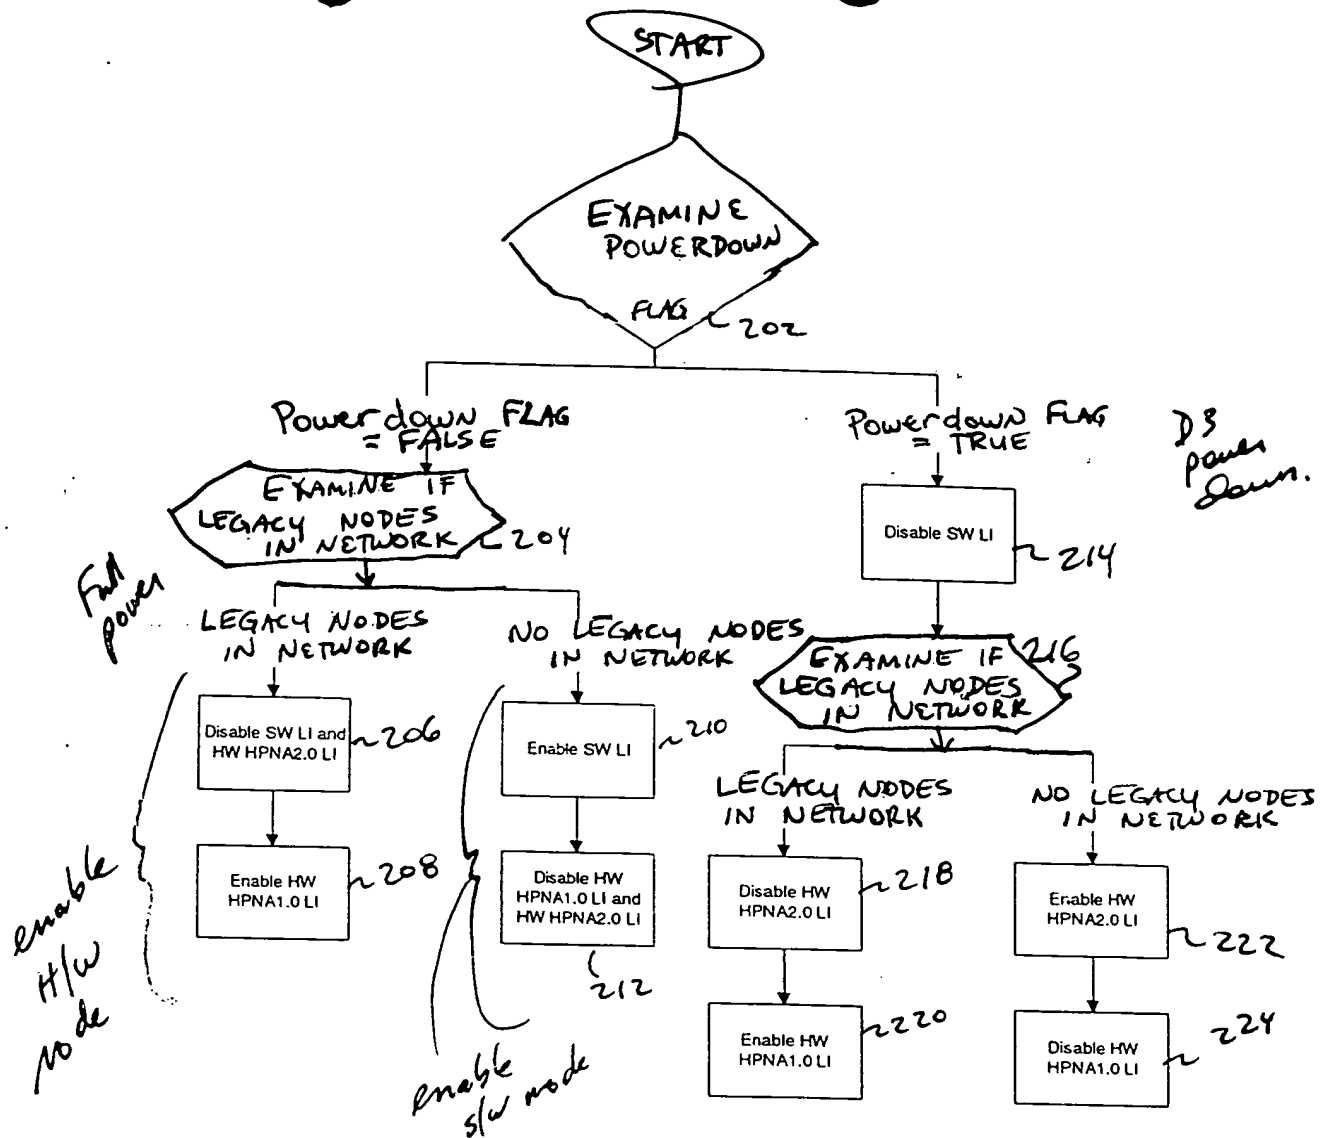 START
EXAMINE
POWERDOWN
FLAG
202
Powerdown FLAG
= FALSE
Powerdown FLAG
= TRUE
D3
power
down.
EXAMINE IF
LEGACY NODES
IN NETWORK
204
Disable SW LI
214
Full
power
LEGACY NODES
IN NETWORK
NO LEGACY NODES
IN NETWORK
EXAMINE IF
LEGACY NODES
IN NETWORK
216
Disable SW LI and
HW HPNA2.0 LI
206
Enable SW LI
210
LEGACY NODES
IN NETWORK
NO LEGACY NODES
IN NETWORK
Enable HW
HPNA1.0 LI
208
Disable HW
HPNA1.0 LI and
HW HPNA2.0 LI
212
Disable HW
HPNA2.0 LI
218
Enable HW
HPNA2.0 LI
222
enable
H/W
mode
enable
s/w mode
Enable HW
HPNA1.0 LI
220
Disable HW
HPNA1.0 LI
224